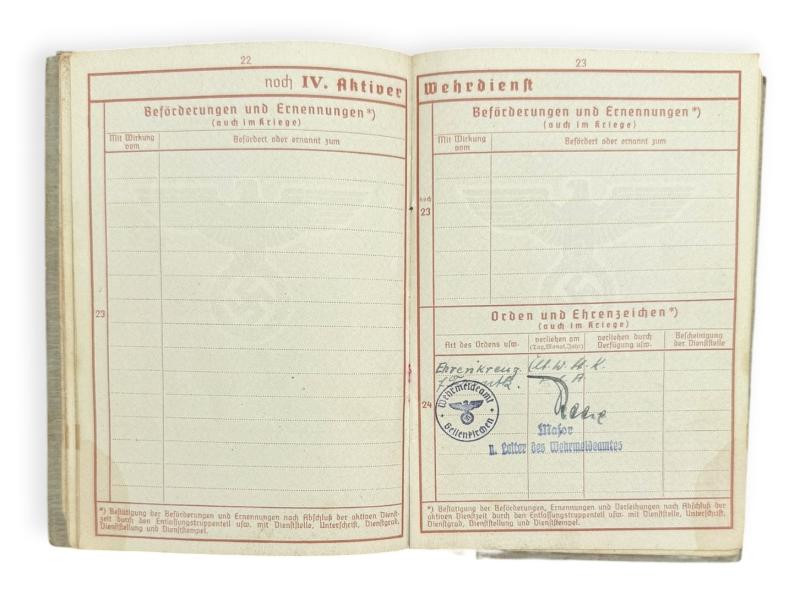 22
noch IV. Aktiver
Beförderungen und Ernennungen*)
(auch im Kriege)
Mit Wirkung vom
Befördert oder ernannt zum
23
*) Bestätigung der Beförderungen und Ernennungen nach Abschluß der aktiven Dienst-
zeit durch den Entlassungstruppenteil usw. mit Dienststelle, Unterschrift, Dienstgrad,
Dienststellung und Dienststempel.
23
Wehrdienst
Beförderungen und Ernennungen*)
(auch im Kriege)
Mit Wirkung vom
Befördert oder ernannt zum
noch
23
Orden und Ehrenzeichen*)
(auch im Kriege)
Art des Ordens usw.
verliehen am
(Tag, Monat, Jahr)
verliehen durch
Verfügung usw.
Bescheinigung
der Dienststelle
Ehrenkreuz
24
Wehrmeldeamt
Geilenkirchen
Major
u. Leiter des Wehrmeldeamtes
*) Bestätigung der Beförderungen, Ernennungen und Verleihungen nach Abschluß der
aktiven Dienstzeit durch den Entlassungstruppenteil usw. mit Dienststelle, Unterschrift,
Dienstgrad, Dienststellung und Dienststempel.